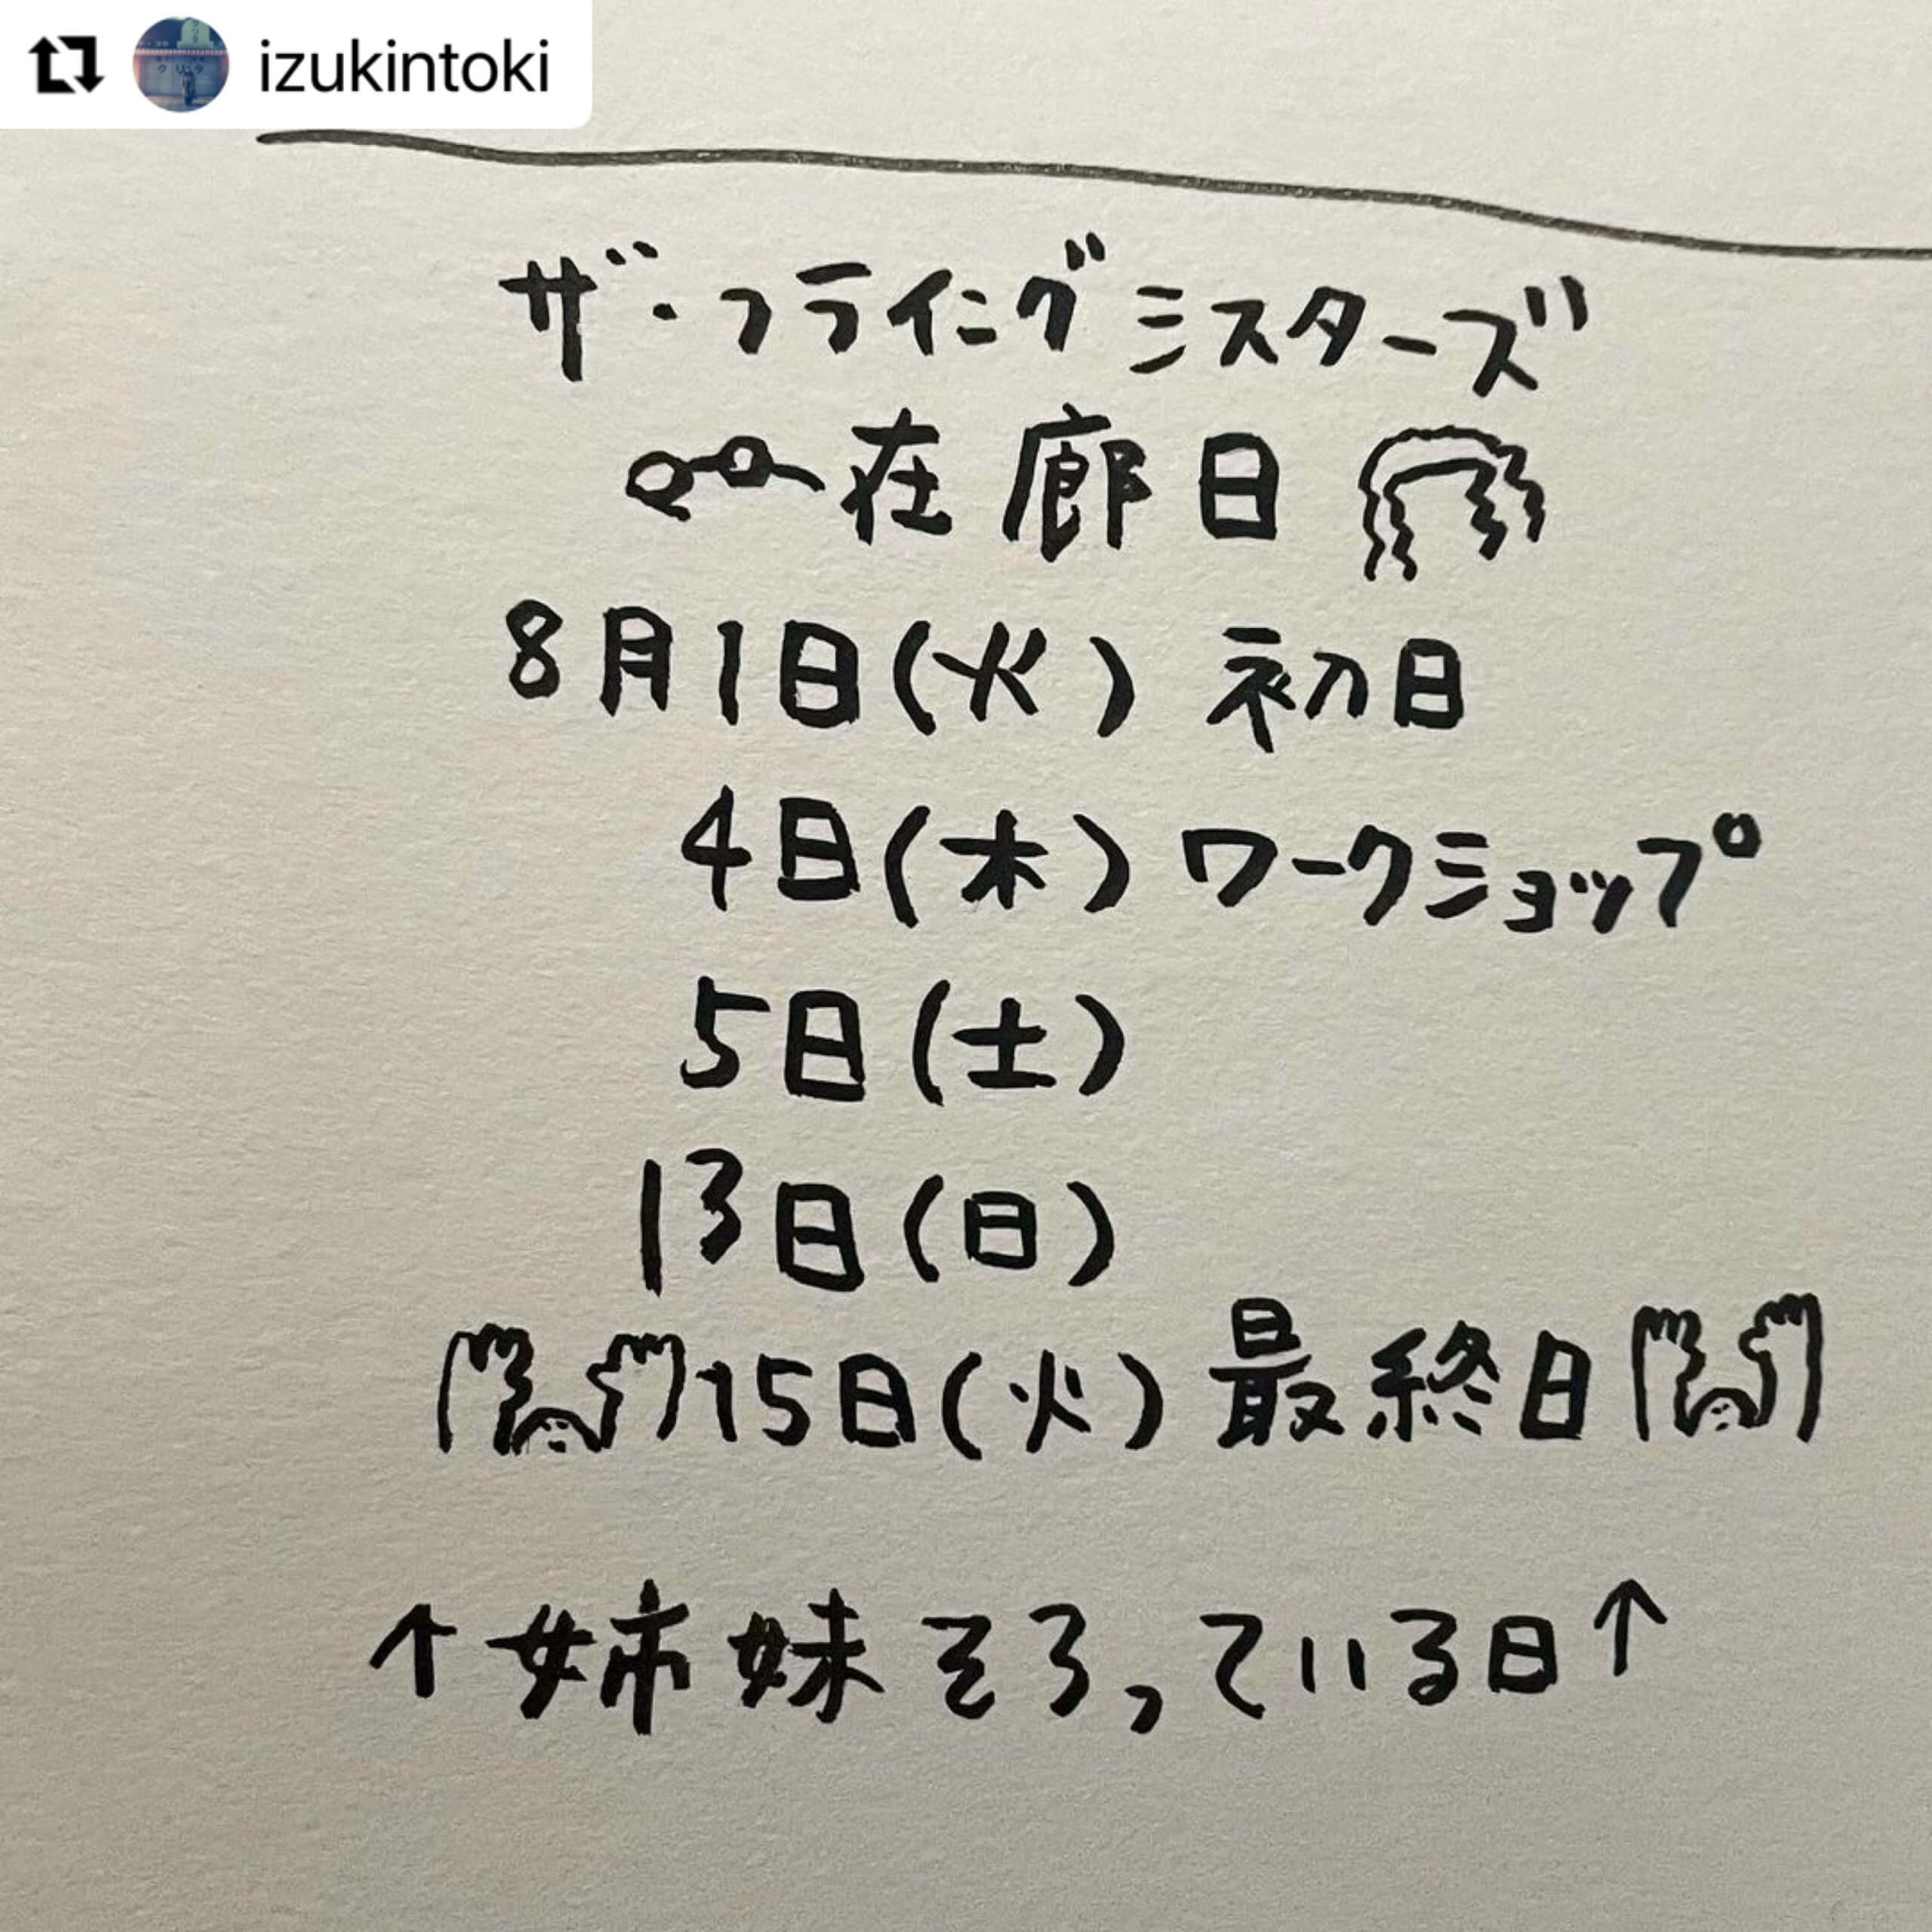 izukintoki
ザ・フライングシスターズ
在廊日
8月1日(火)初日
4日(木)ワークショップ
5日(土)
13日(日)
15日(火)最終日
↑姉妹そろっている日↑